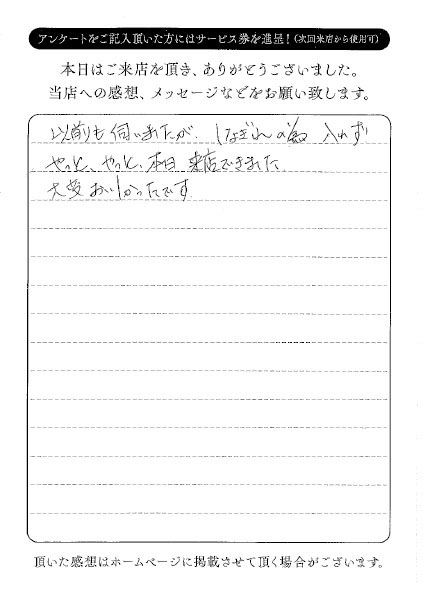 アンケートをご記入頂いた方にはサービス券を進呈！(次回来店から使用可)
本日はご来店を頂き、ありがとうございました。
当店への感想、メッセージなどをお願い致します。
以前も伺いましたが、しなぎれの為 入れず
やっと、やっと、本日 来店できました
大変おいしかったです
頂いた感想はホームページに掲載させて頂く場合がございます。